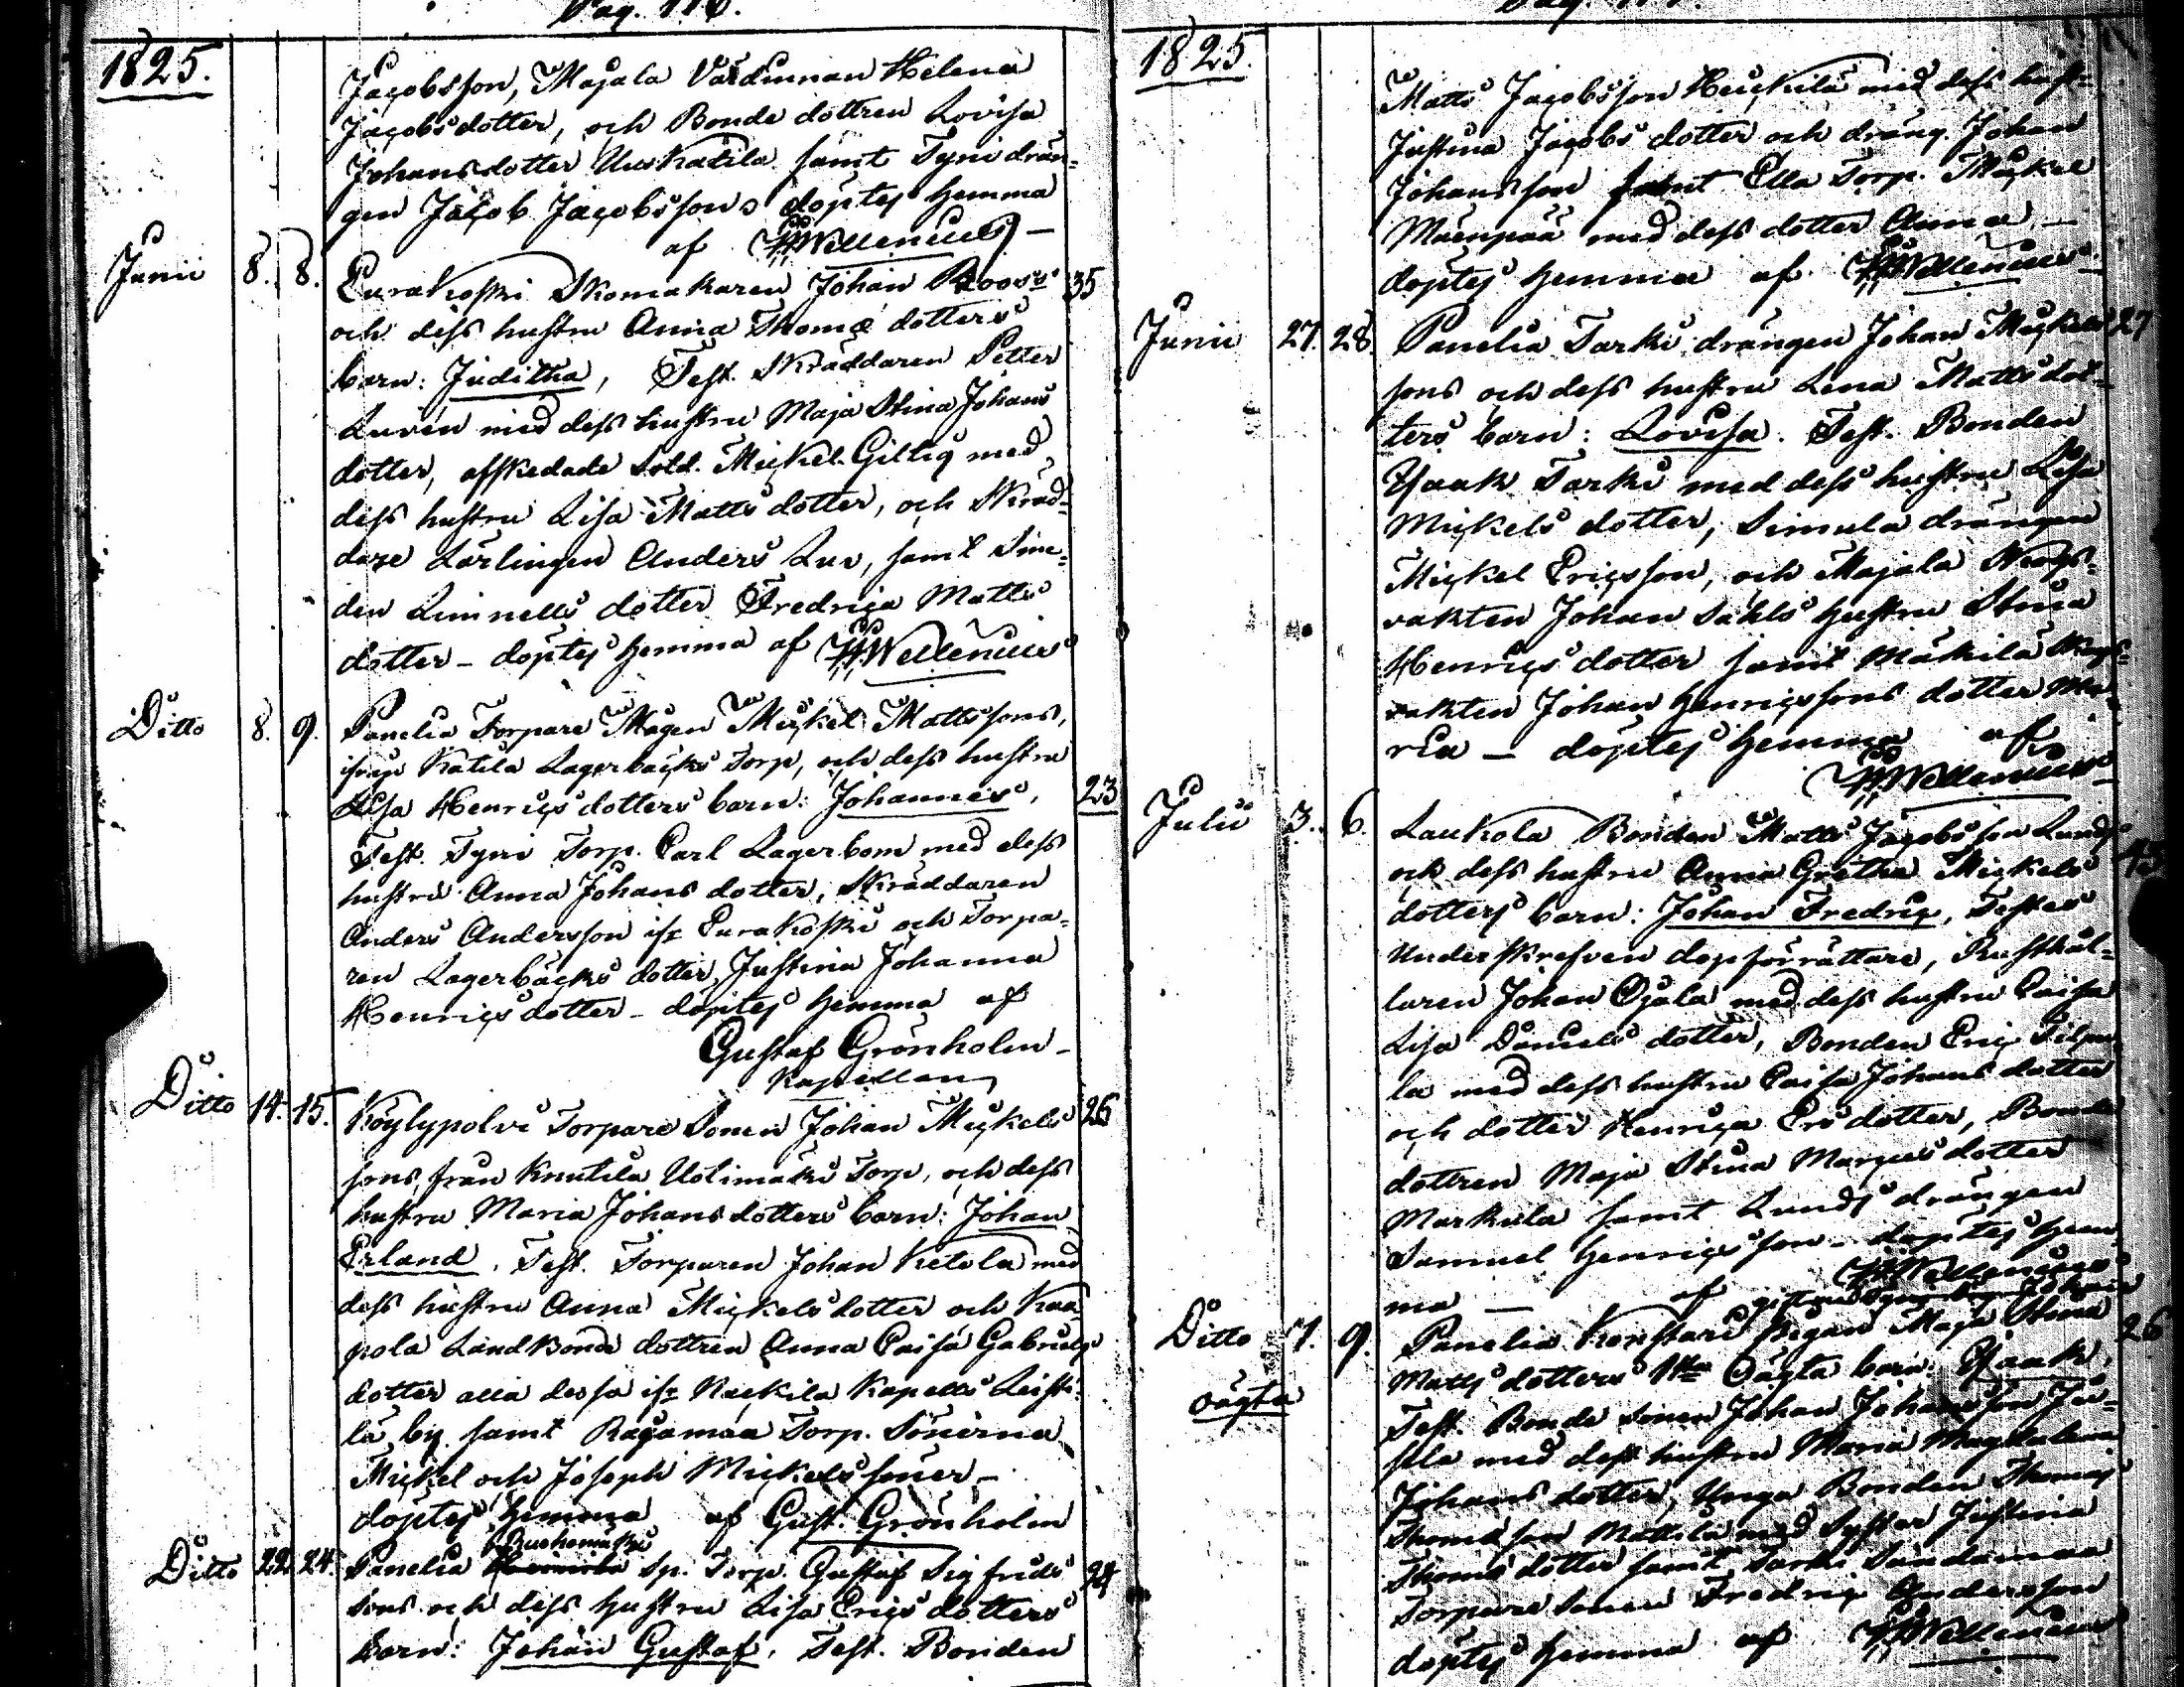 Pag. 116.
1825.
Jacobsson, Majala Värdinnan Helena
Jacobsdotter, och Bonde dottren Lovisa
Johansdotter Uuskatila samt Tyni drän-
gen Jacob Jacobssons döptes hemma
af HHWellenius
Junii 8. 8. Eurakoski Skomakaren Johan Roos's 35
och dess hustru Anna Thomæ dotters
barn: Juditha, Test. Skräddaren Petter
Lurén med dess hustru Maja Stina Johans
dotter, afskedade Sold. Mickel Giltig med
dess hustru Lisa Matts dotter, och Skräd-
dare Lärlingen Anders Luv, samt Sme-
den Limnells dotter Fredrica Matts
dotter - döptes hemma af HHWellenius
Ditto 8. 9. Panelia Torpare Mågen Mickel Mattssons,
ifrån Katila Lagerbäcks Torp, och dess hustru
Lisa Henrics dotters barn: Johannes, 23
Test. Tyni Torp. Carl Lagerbom med dess
hustru Anna Johans dotter, Skräddaren
Anders Andersson ifr Eurakoski och Torpa-
ren Lagerbäcks dotter Justina Johanna
Henrics dotter - döptes hemma af
Gustaf Grönholm -
Kapellan
Ditto 14. 15. Köylypolvi Torpare Sonen Johan Mickels 26
sons från Knutila Uolimäki Torp, och dess
hustru Maria Johans dotters barn: Johan
Erland. Test. Torparen Johan Ketola med
dess hustru Anna Mickels dotter och Kaa
pola Landbonde dottren Anna Caisa Gabriels
dotter alla dessa ifr Kackila Kapells Leisti-
lä by samt Rajamaa Torp. Sönerna
Mickel och Joseph Mickels söner -
döptes hemma af Gust. Grönholm
Ditto 22. 24. Panelia Ruohomäki Sp. Torp. Gustaf Sigfrids 24
sons och dess hustru Lisa Erics dotters
barn: Johan Gustaf. Test. Bonden
1825.
Matts Jacobsson Heickilä med dess hust-
Justina Jacobs dotter och dräng. Johan
Johansson samt Ella Torp. Mickel
Mäenpää med dess dotter Anna -
döptes hemma af HHWellenius
Junii 27. 28. Panelia Tarki drängen Johan Mickels 27
sons och dess hustru Lena Matts dot-
ters barn: Lovisa. Test. Bonden
Isaak Tarki med dess hustru Lisa
Mickels dotter, Simula drängen
Mickel Ericsson, och Majala Krogs-
vakten Johan Sahls hustru Stina
Henrics dotter samt Mäkilä
vakten Johan Henricssons dotter Ma-
ria - döptes hemma af
HHWellenius
Julii 3. 6. Laukola Bonden Matts Jacobsson Lundi
och dess hustru Anna Gretha Mickels
dotters barn: Johan Fredric, Testes
Underskrefven dopförrättare, Rusthål-
laren Johan Ojala med dess hustru Caisa
Lisa Daniels dotter, Bonden Eric
la med dess hustru Caisa Johans dotter
och dotter Henrica Ers dotter, Bonde
dottren Maja Stina Marcus dotter
Markula samt Lundi drängen
Samuel Henricsson - döptes hem
ma - af HHWellenius
Ditto 7. 9. Panelia Konstari Pigan Maja Stina 26
oägta Matts dotters 1sta Oägta barn: Isaak.
Test. Bonde sonen Johan Johansson
sila med dess hustru Maria Magdalena
Johans dotter, Unga Bonden Thomas
Thomasson Mattila med Syster Justina
Thomæ dotter samt Tarki
Torpare Sonen Fredric Andersson
döptes hemma af HHWellenius